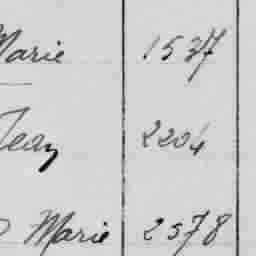 Marie 1537
Jean 2204
Marie 2578